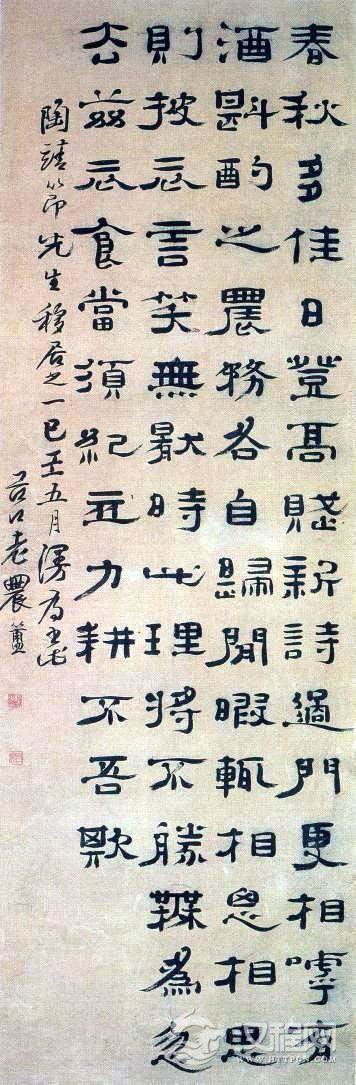 春秋多佳日登高賦新詩過門更相嘑有
酒斟酌之農務各自歸閒暇輒相思相思
則披衣言笑無厭時此理將不勝為忽
去茲衣食當須紀力耕不吾欺
陶靖節先生移居之一五月漫為
谷口老農簠
汉程网
HTTPCN.COM